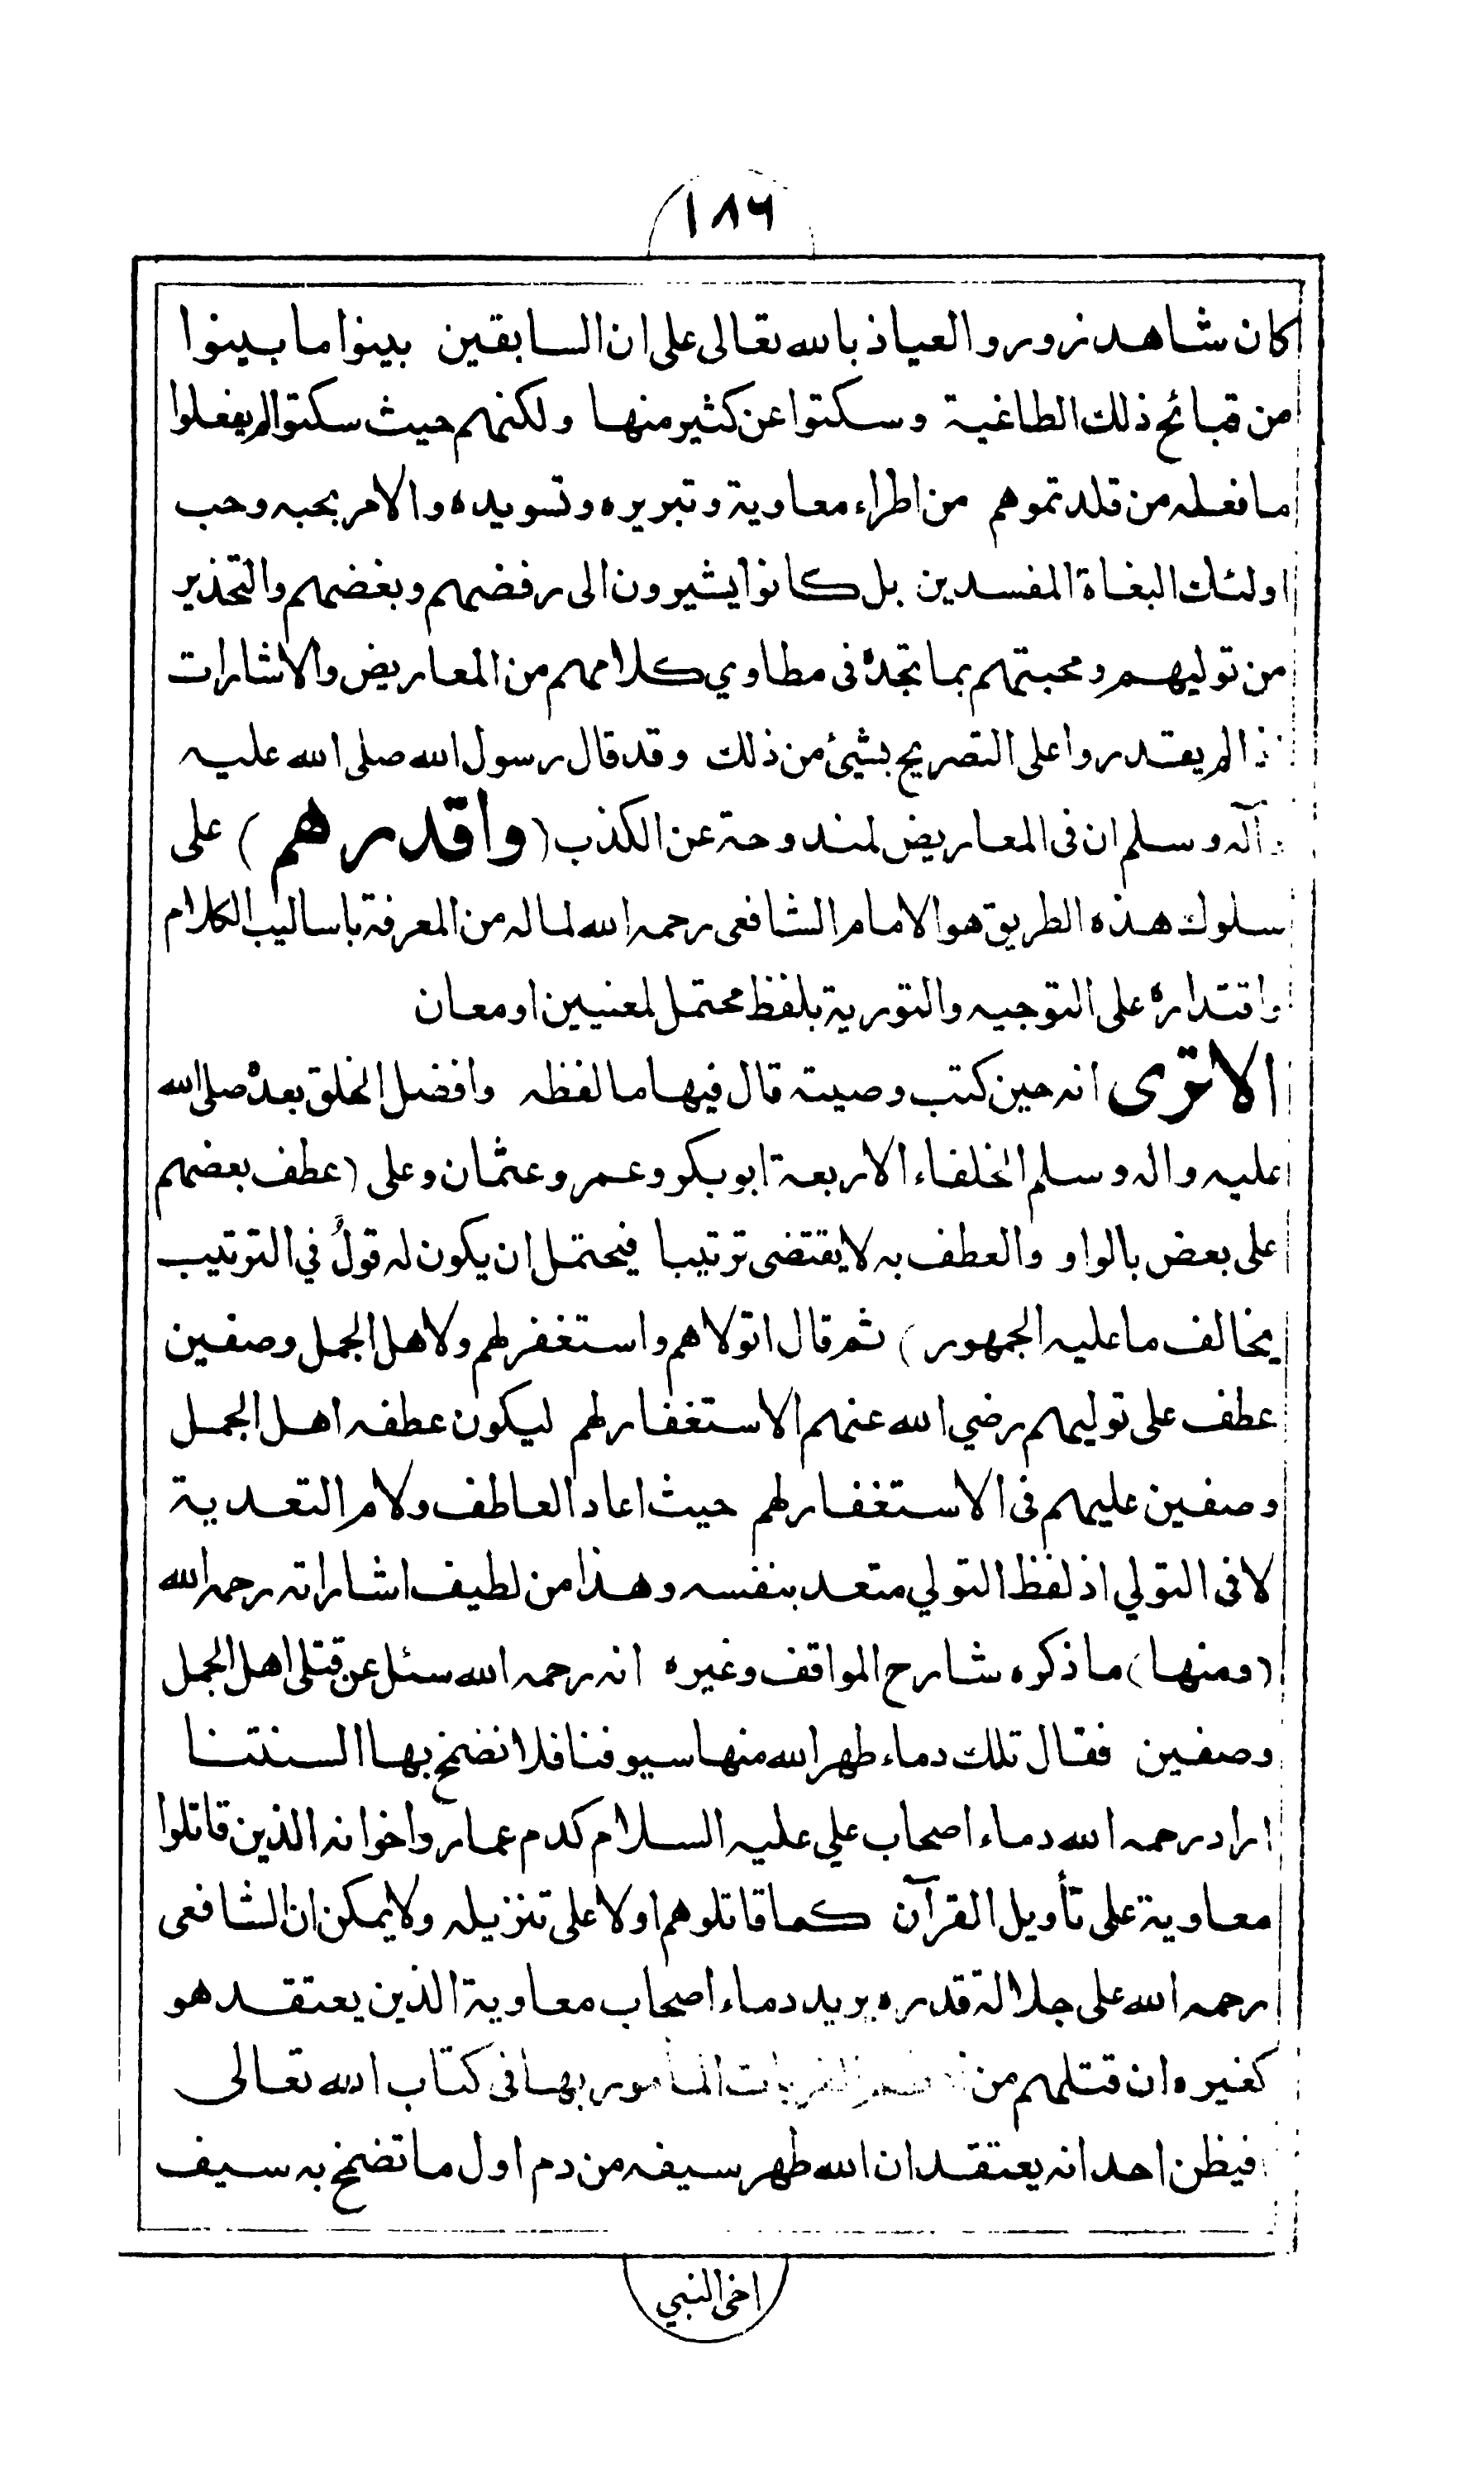 ١٨٦
كان شاهد زور والعياذ بالله تعالى على ان السابقين بينوا ما بينوا
من قبائح ذلك الطاغية وسكتوا عن كثير منها ولكنهم حيث سكتوا لم يفعلوا
ما فعله من قلدتموهم من اطراء معاوية وتبريره وتسويده والامر بحبه وحب
اولئك البغاة المفسدين بل كانوا يشيرون الى رفضهم وبغضهم والتحذير
من توليهم ومحبتهم بما تجده فى مطاوي كلامهم من المعاريض والاشارات
اذا لم يقدروا على التصريح بشيئ من ذلك وقد قال رسول الله صلى الله عليه
وآله وسلم ان فى المعاريض لمندوحة عن الكذب (واقدرهم) على
سلوك هذه الطريق هو الامام الشافعى رحمه الله لما له من المعرفة باساليب الكلام
واقتداره على التوجيه والتورية بلفظ محتمل لمعنيين او معان
الا ترى انه حين كتب وصيته قال فيها ما لفظه وافضل الخلق بعده صلى الله
عليه واله وسلم الخلفاء الاربعة ابوبكر وعمر وعثمان وعلى (عطف بعضهم
على بعض بالواو والعطف به لا يقتضى ترتيبا فيحتمل ان يكون له قولٌ في الترتيب
يخالف ما عليه الجمهور) ثم قال اتولاهم واستغفر لهم ولاهل الجمل وصفين
عطف على توليهم رضي الله عنهم الاستغفار لهم ليكون عطفه اهل الجمل
وصفين عليهم فى الاستغفار لهم حيث اعاد العاطف ولام التعدية
لا فى التولي اذ لفظ التولي متعد بنفسه وهذا من لطيف اشاراته رحمه الله
(ومنها) ما ذكره شارح المواقف وغيره انه رحمه الله سئل عن قتلى اهل الجمل
وصفين فقال تلك دماء طهر الله منها سيوفنا فلا نضمخ بها السنتنا
اراد رحمه الله دماء اصحاب علي عليه السلام كدم عمار واخوانه الذين قاتلوا
معاوية على تأويل القرآن كما قاتلوهم اولا على تنزيله ولا يمكن ان الشافعى
رحمه الله على جلالة قدره يريد دماء اصحاب معاوية الذين يعتقد هو
كغيره ان قتلهم من المأمور بها فى كتاب الله تعالى
فيظن احد انه يعتقد ان الله طهر سيفه من دم اول ما تضمخ به سيف
اخى النبي